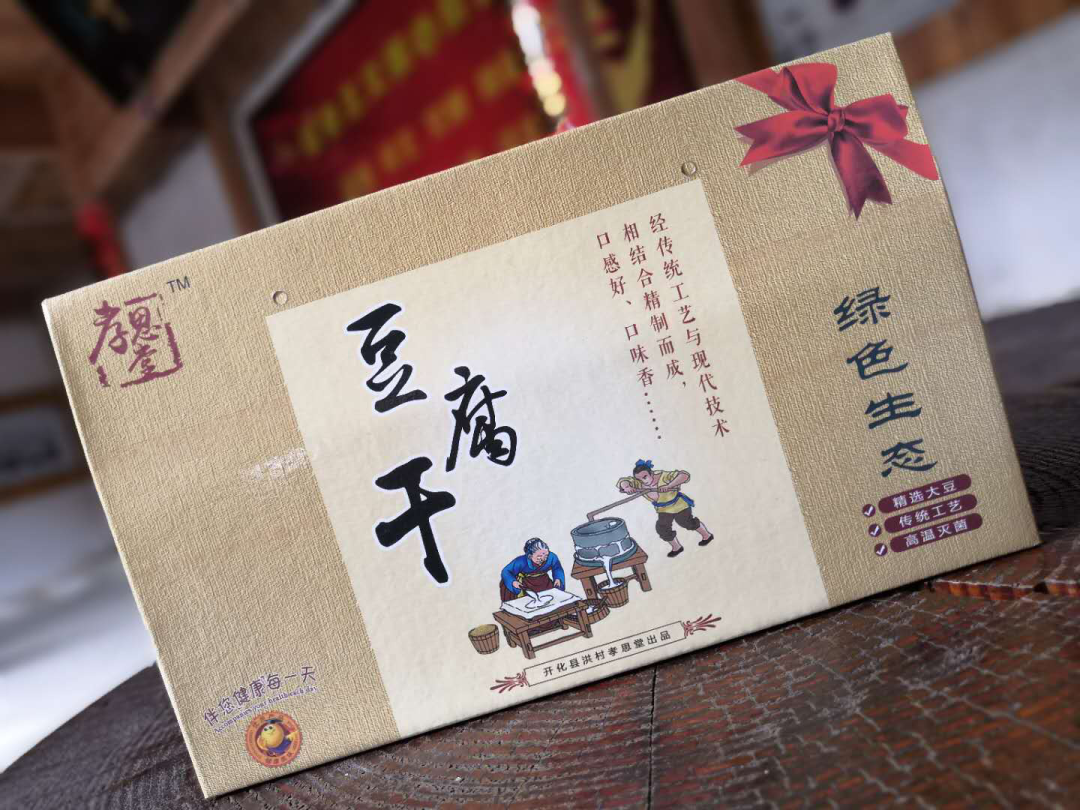 孝思堂
TM
豆腐干
经传统工艺与现代技术
相结合精制而成，
口感好、口味香……
绿色生态
精选大豆
传统工艺
高温灭菌
开化县洪村孝思堂出品
伴您健康每一天